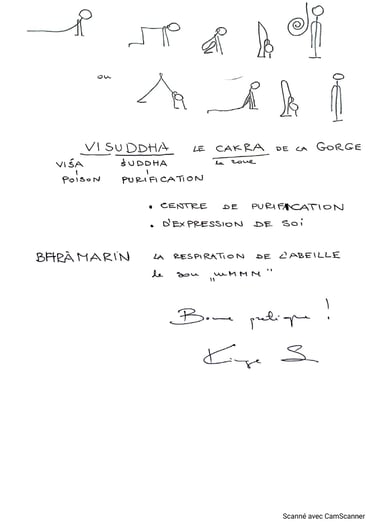 ou
VISUDDHA LE CAKRA DE LA GORGE
VIŚA ŚUDDHA la roue
POISON PURIFICATION
• CENTRE DE PURIFICATION
• D'EXPRESSION DE SOI
BHRÀMARIN LA RESPIRATION DE L'ABEILLE
le son „mMMM"
Bonne pratique !
Scanné avec CamScanner